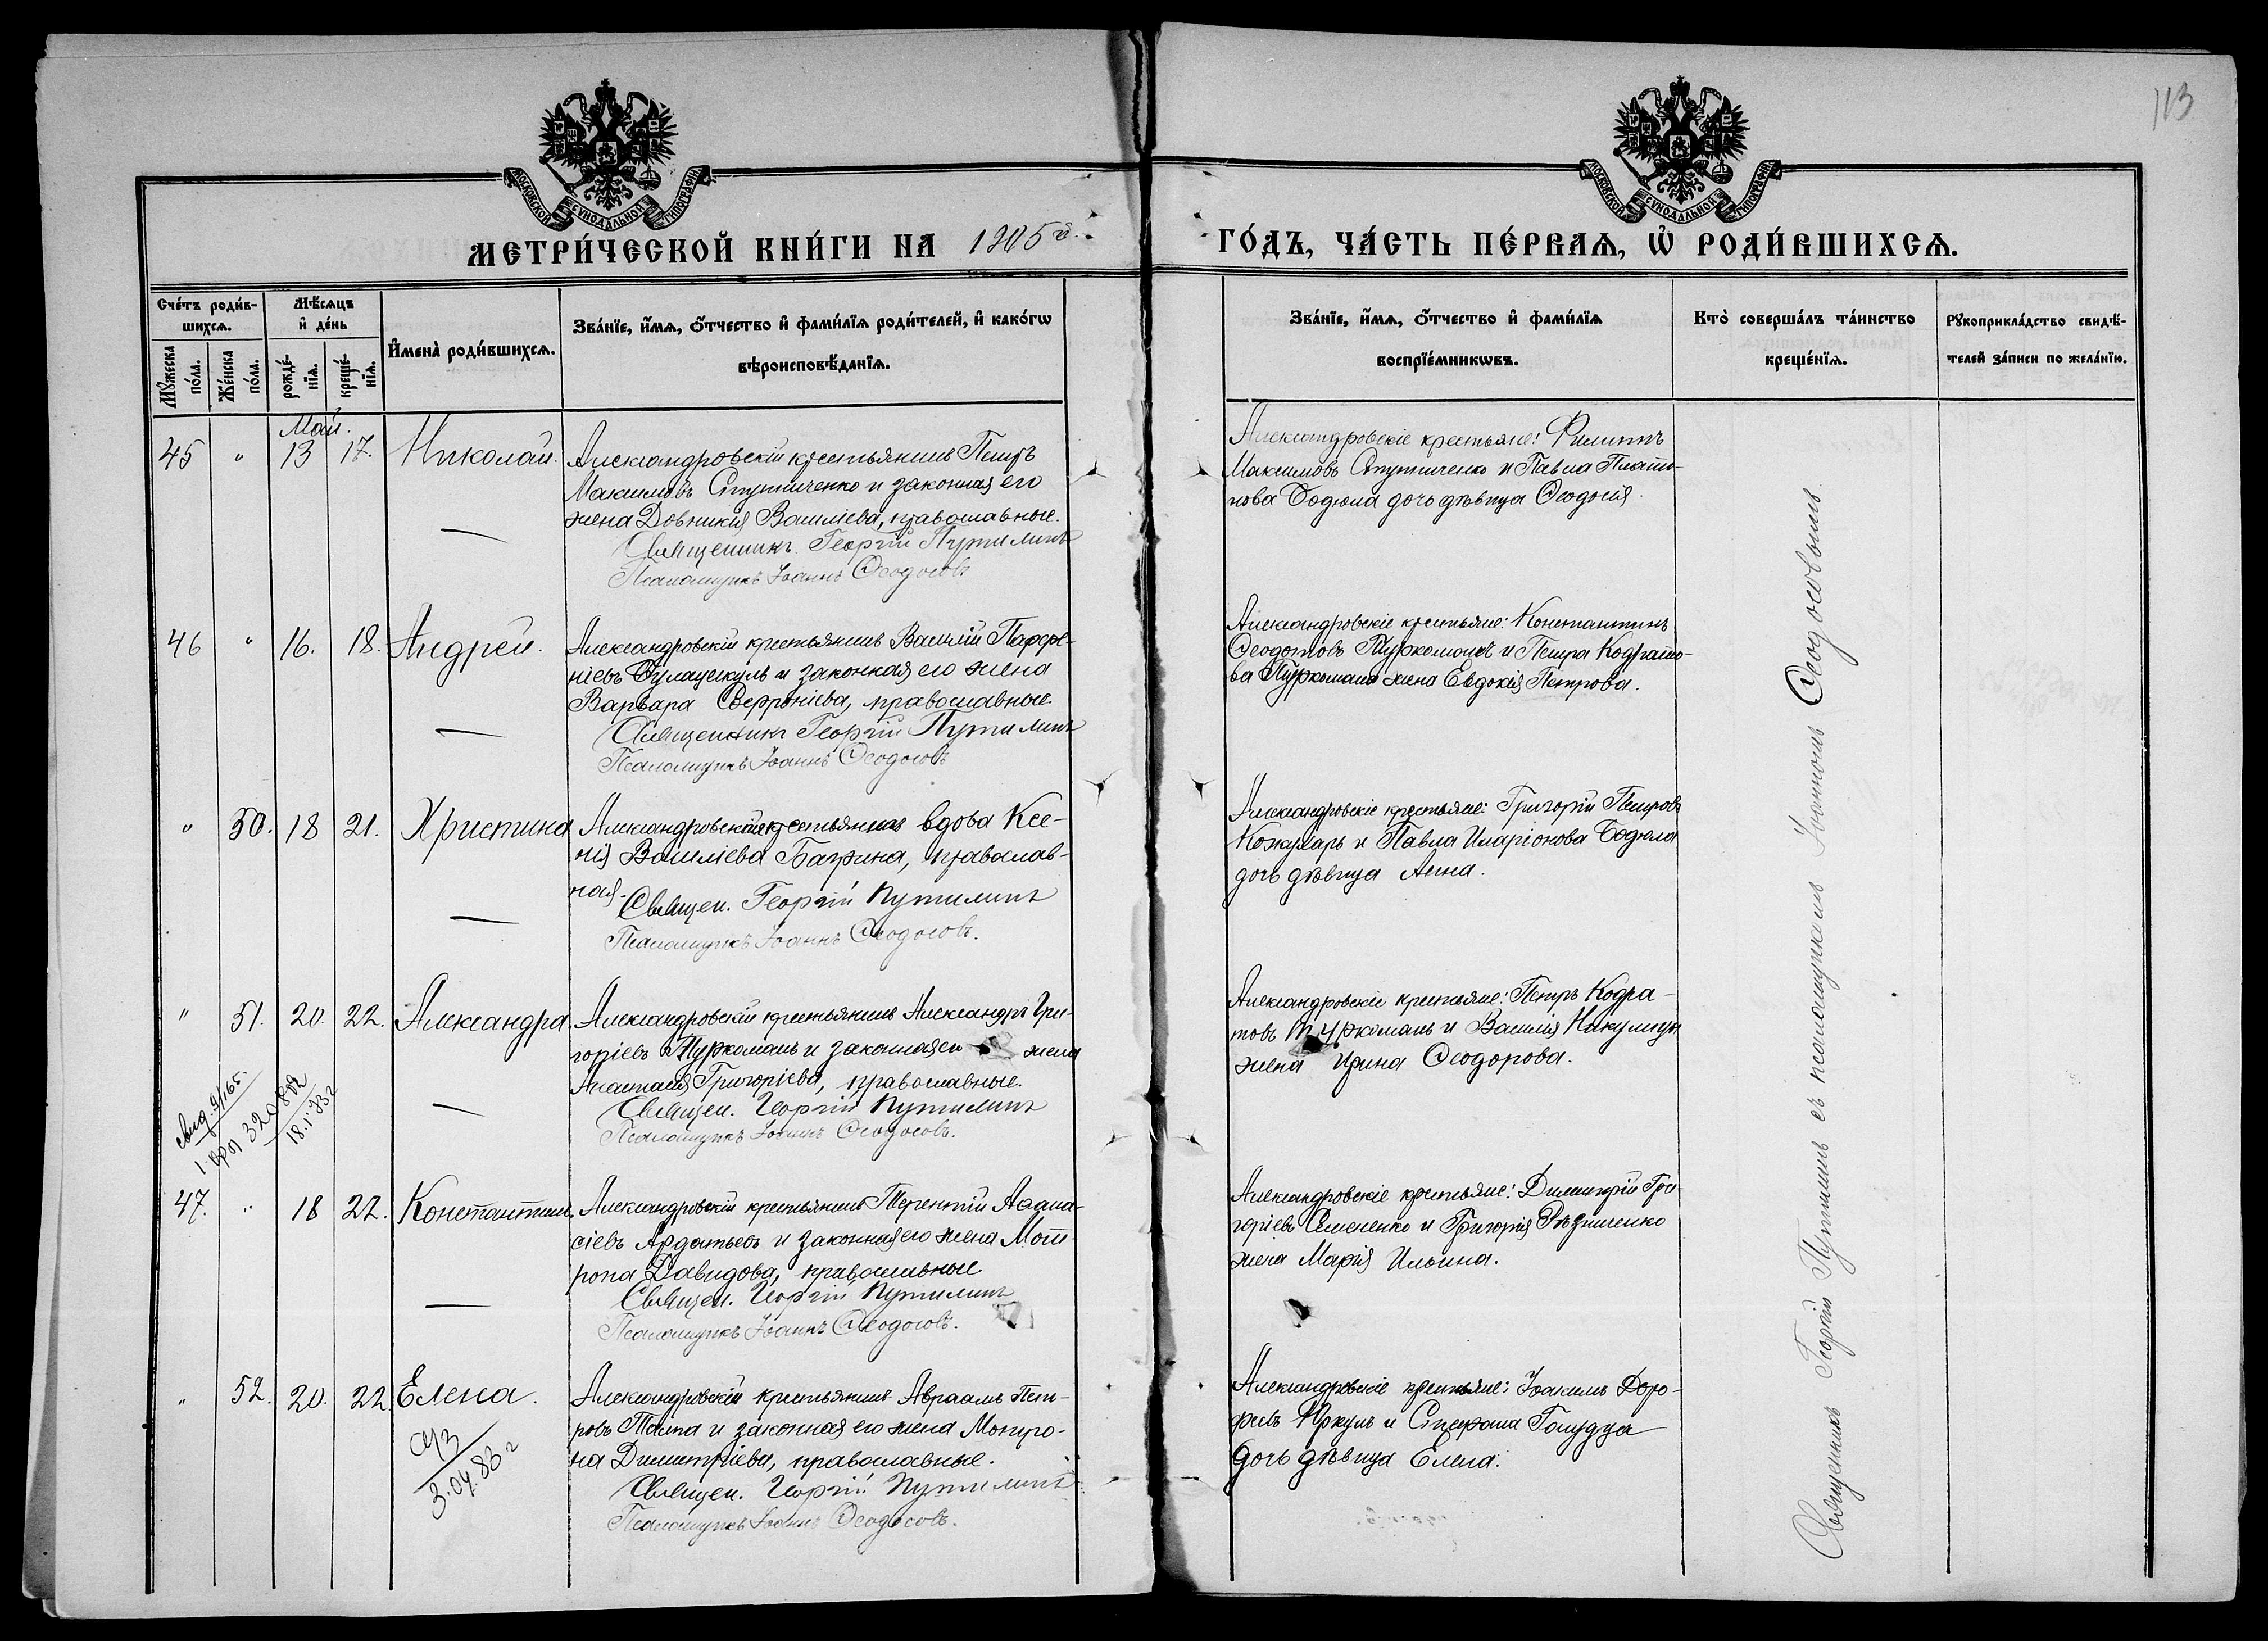 113
МОСКОВСКОЙ СУНОДАЛЬНОЙ ТИПОГРАФІИ
МОСКОВСКОЙ СУНОДАЛЬНОЙ ТИПОГРАФІИ
МЕТРИ́ЧЕСКОЙ КНИ́ГИ НА 1905 г.
ГО́ДЪ, ЧА́СТЬ ПЕ́РВАѦ, Ѡ҆ РОДИ́ВШИХСѦ.
Сче́тъ роди́в-
шихсѧ.
Мꙋ́жеска по́ла.
Же́нска по́ла.
Мѣ́сѧцъ
и҆ де́нь
рожде́-
нїѧ.
креще́-
нїѧ.
И҆мена̀ роди́вшихсѧ.
Зва́нїе, и҆́мѧ, ѻ҆́тчество и҆ фами́лїѧ роди́телей, и҆ како́гѡ
вѣроисповѣ́данїѧ.
Зва́нїе, и҆́мѧ, ѻ҆́тчество и҆ фами́лїѧ
воспрїе́мникѡвъ.
Кто̀ соверша́лъ та́инство
креще́нїѧ.
Рꙋкоприкла́дство свидѣ́-
телей за́писи по жела́нїю.
Май.
45 " 13 17. Николай.
Александровскій крестьянинъ Петръ
Максимовъ Спутниченко и законная его
жена Довникія Василіева, православные.
Священникъ Георгій Путилинъ
Псаломщикъ Іоаннъ Ѳеодосовъ
Александровскіе крестьяне: Филиппъ
Максимовъ Спутниченко и Павла Плато-
нова Бодюла дочь дѣвица Ѳеодосія.
46 " 16. 18. Андрей.
Александровскій крестьянинъ Василій Парѳе-
ніевъ и законная его жена
Варвара православные.
Священникъ Георгій Путилинъ
Псаломщикъ Іоаннъ Ѳеодосовъ
Александровскіе крестьяне: Константинъ
Ѳеодотовъ Туркоманъ и Петра Кодрато-
ва Туркомана жена Евдокія Петрова.
" 50. 18 21. Христина
Александровская крестьянка вдова Ксе-
нія Василіева Багрина, православ-
ная.
Священ. Георгій Путилинъ
Псаломщикъ Іоаннъ Ѳеодосовъ.
Александровскіе крестьяне: Григорій Петровъ
Кожухарь и Павла Иларіонова Бодюла
дочь дѣвица Анна.
" 51. 20. 22. Александра
Александровскій крестьянинъ Александръ Гри-
горіевъ Туркоманъ и законная его жена
Анастасія Григоріева, православные.
Священ. Георгій Путилинъ
Псаломщикъ Іоаннъ Ѳеодосовъ.
Александровскіе крестьяне: Петръ Кодра-
товъ Туркоманъ и Василія Никулицы
жена Ирина Ѳеодорова.
18.1.83 г
47. " 18 22. Константинъ.
Александровскій крестьянинъ Терентій Аѳана-
сіевъ Ардатьевъ и законная его жена Мот-
рона Давидова, православные
Священ. Георгій Путилинъ
Псаломщикъ Іоаннъ Ѳеодосовъ.
Александровскіе крестьяне: Димитрій Гри-
горіевъ Семененко и Григорія Рѣзниченко
жена Марія Ильина.
" 52. 20. 22. Елена.
Александровскій крестьянинъ Авраамъ Пет-
ровъ и законная его жена Мотро-
на Димитріева, православные.
Священ. Георгій Путилинъ
Псаломщикъ Іоаннъ Ѳеодосовъ.
Александровскіе крестьяне: Іоакимъ Доро-
феевъ и Стефана
дочь дѣвица Елена.
3.04.83 г
Священникъ Георгій Путилинъ съ псаломщикомъ Іоанномъ Ѳеодосовымъ